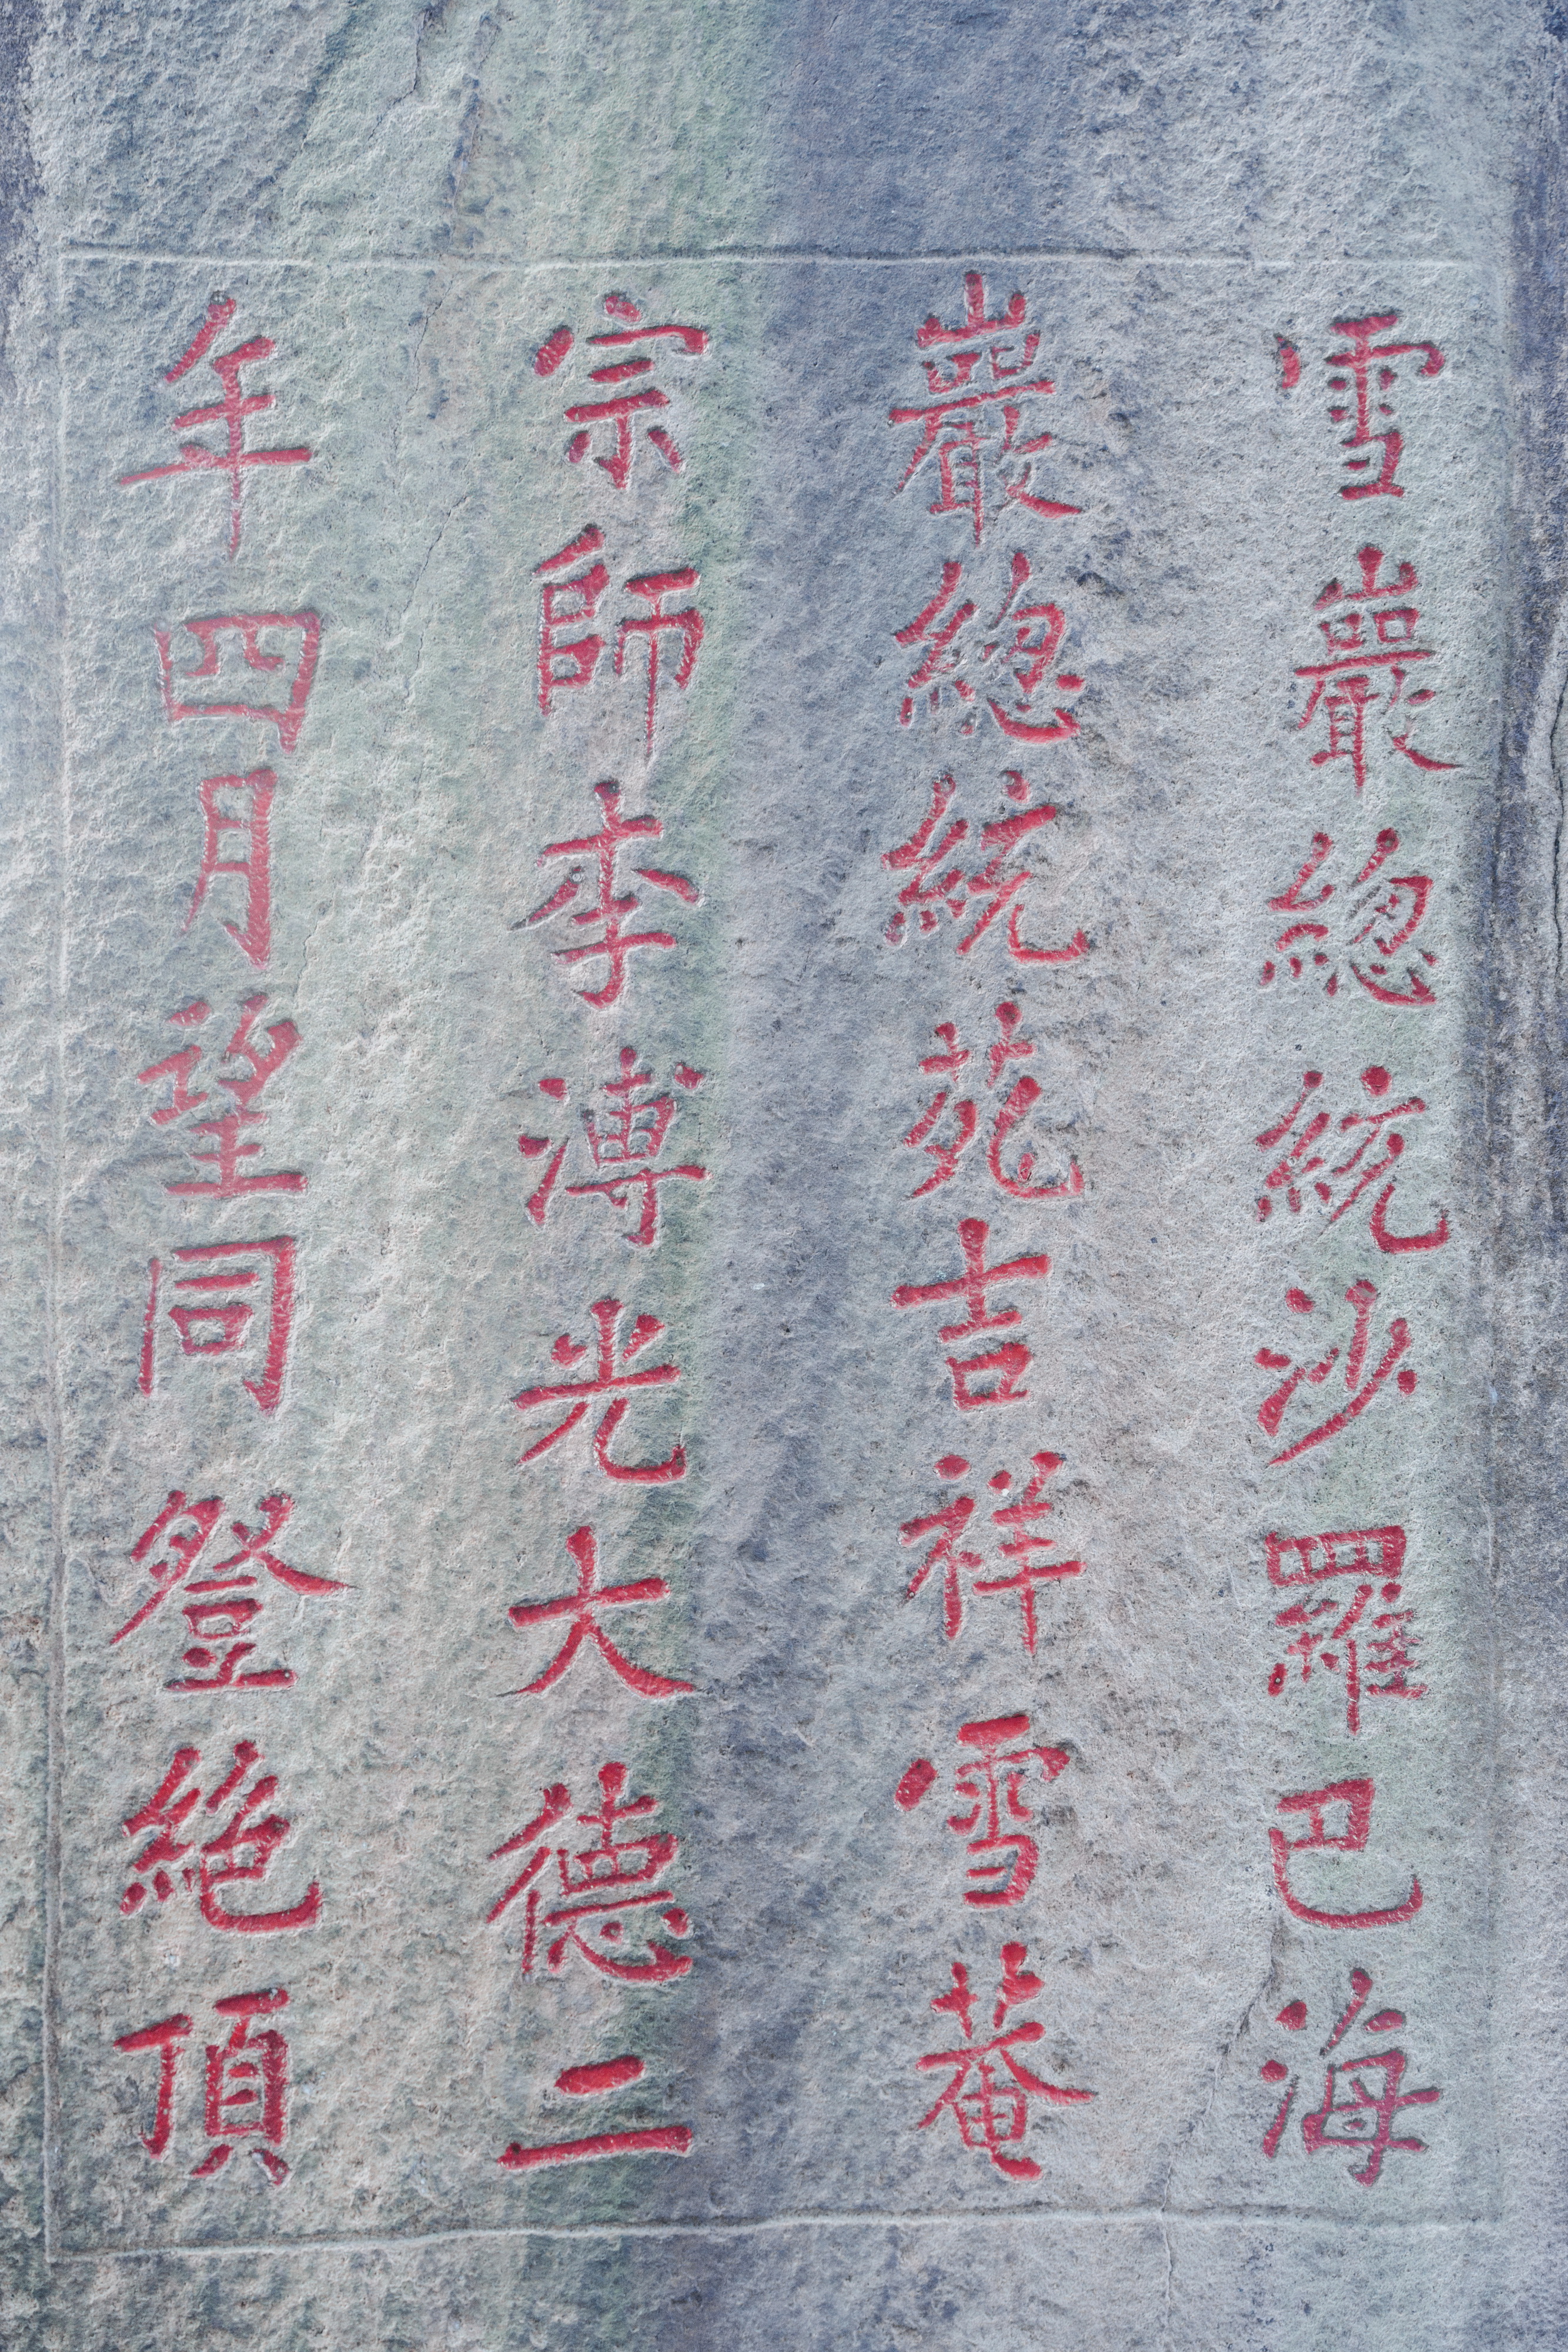 雪巖總統沙羅巴海
巖總統苑吉祥雪菴
宗師李溥光大德二
年四月望同登絕頂